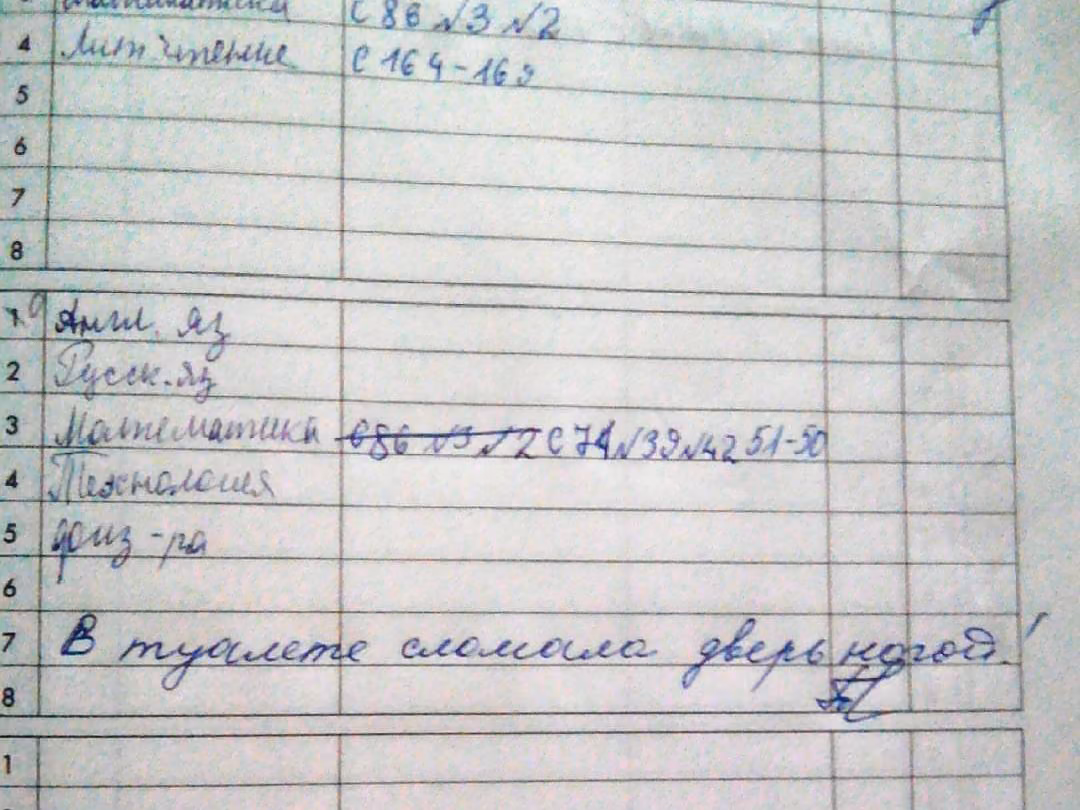 Математика С 86 №3 №2
4 Лит. чтение С 164-169
5
6
7
8
1 Англ. яз
2 Русск. яз
3 Математика С86 №3 №2 С 74 №39 №42 51-50
4 Технология
5 физ-ра
6
7 В туалете сломала дверь ногой!
8
1